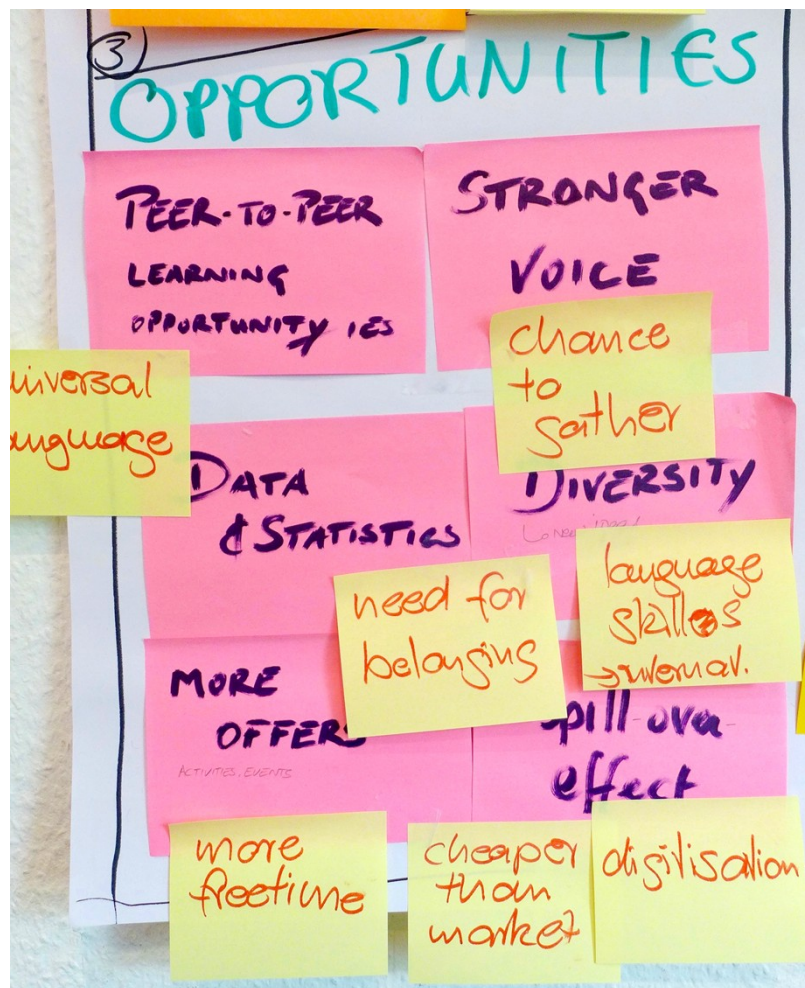 3
OPPORTUNITIES
PEER-TO-PEER
LEARNING
OPPORTUNITY IES
STRONGER
VOICE
chance
to
gather
universal
language
DATA
& STATISTICS
DIVERSITY
need for
belonging
language
skills
→ internat.
MORE
OFFERS
ACTIVITIES, EVENTS
spill-over
effect
more
freetime
cheaper
than
market
digitisation